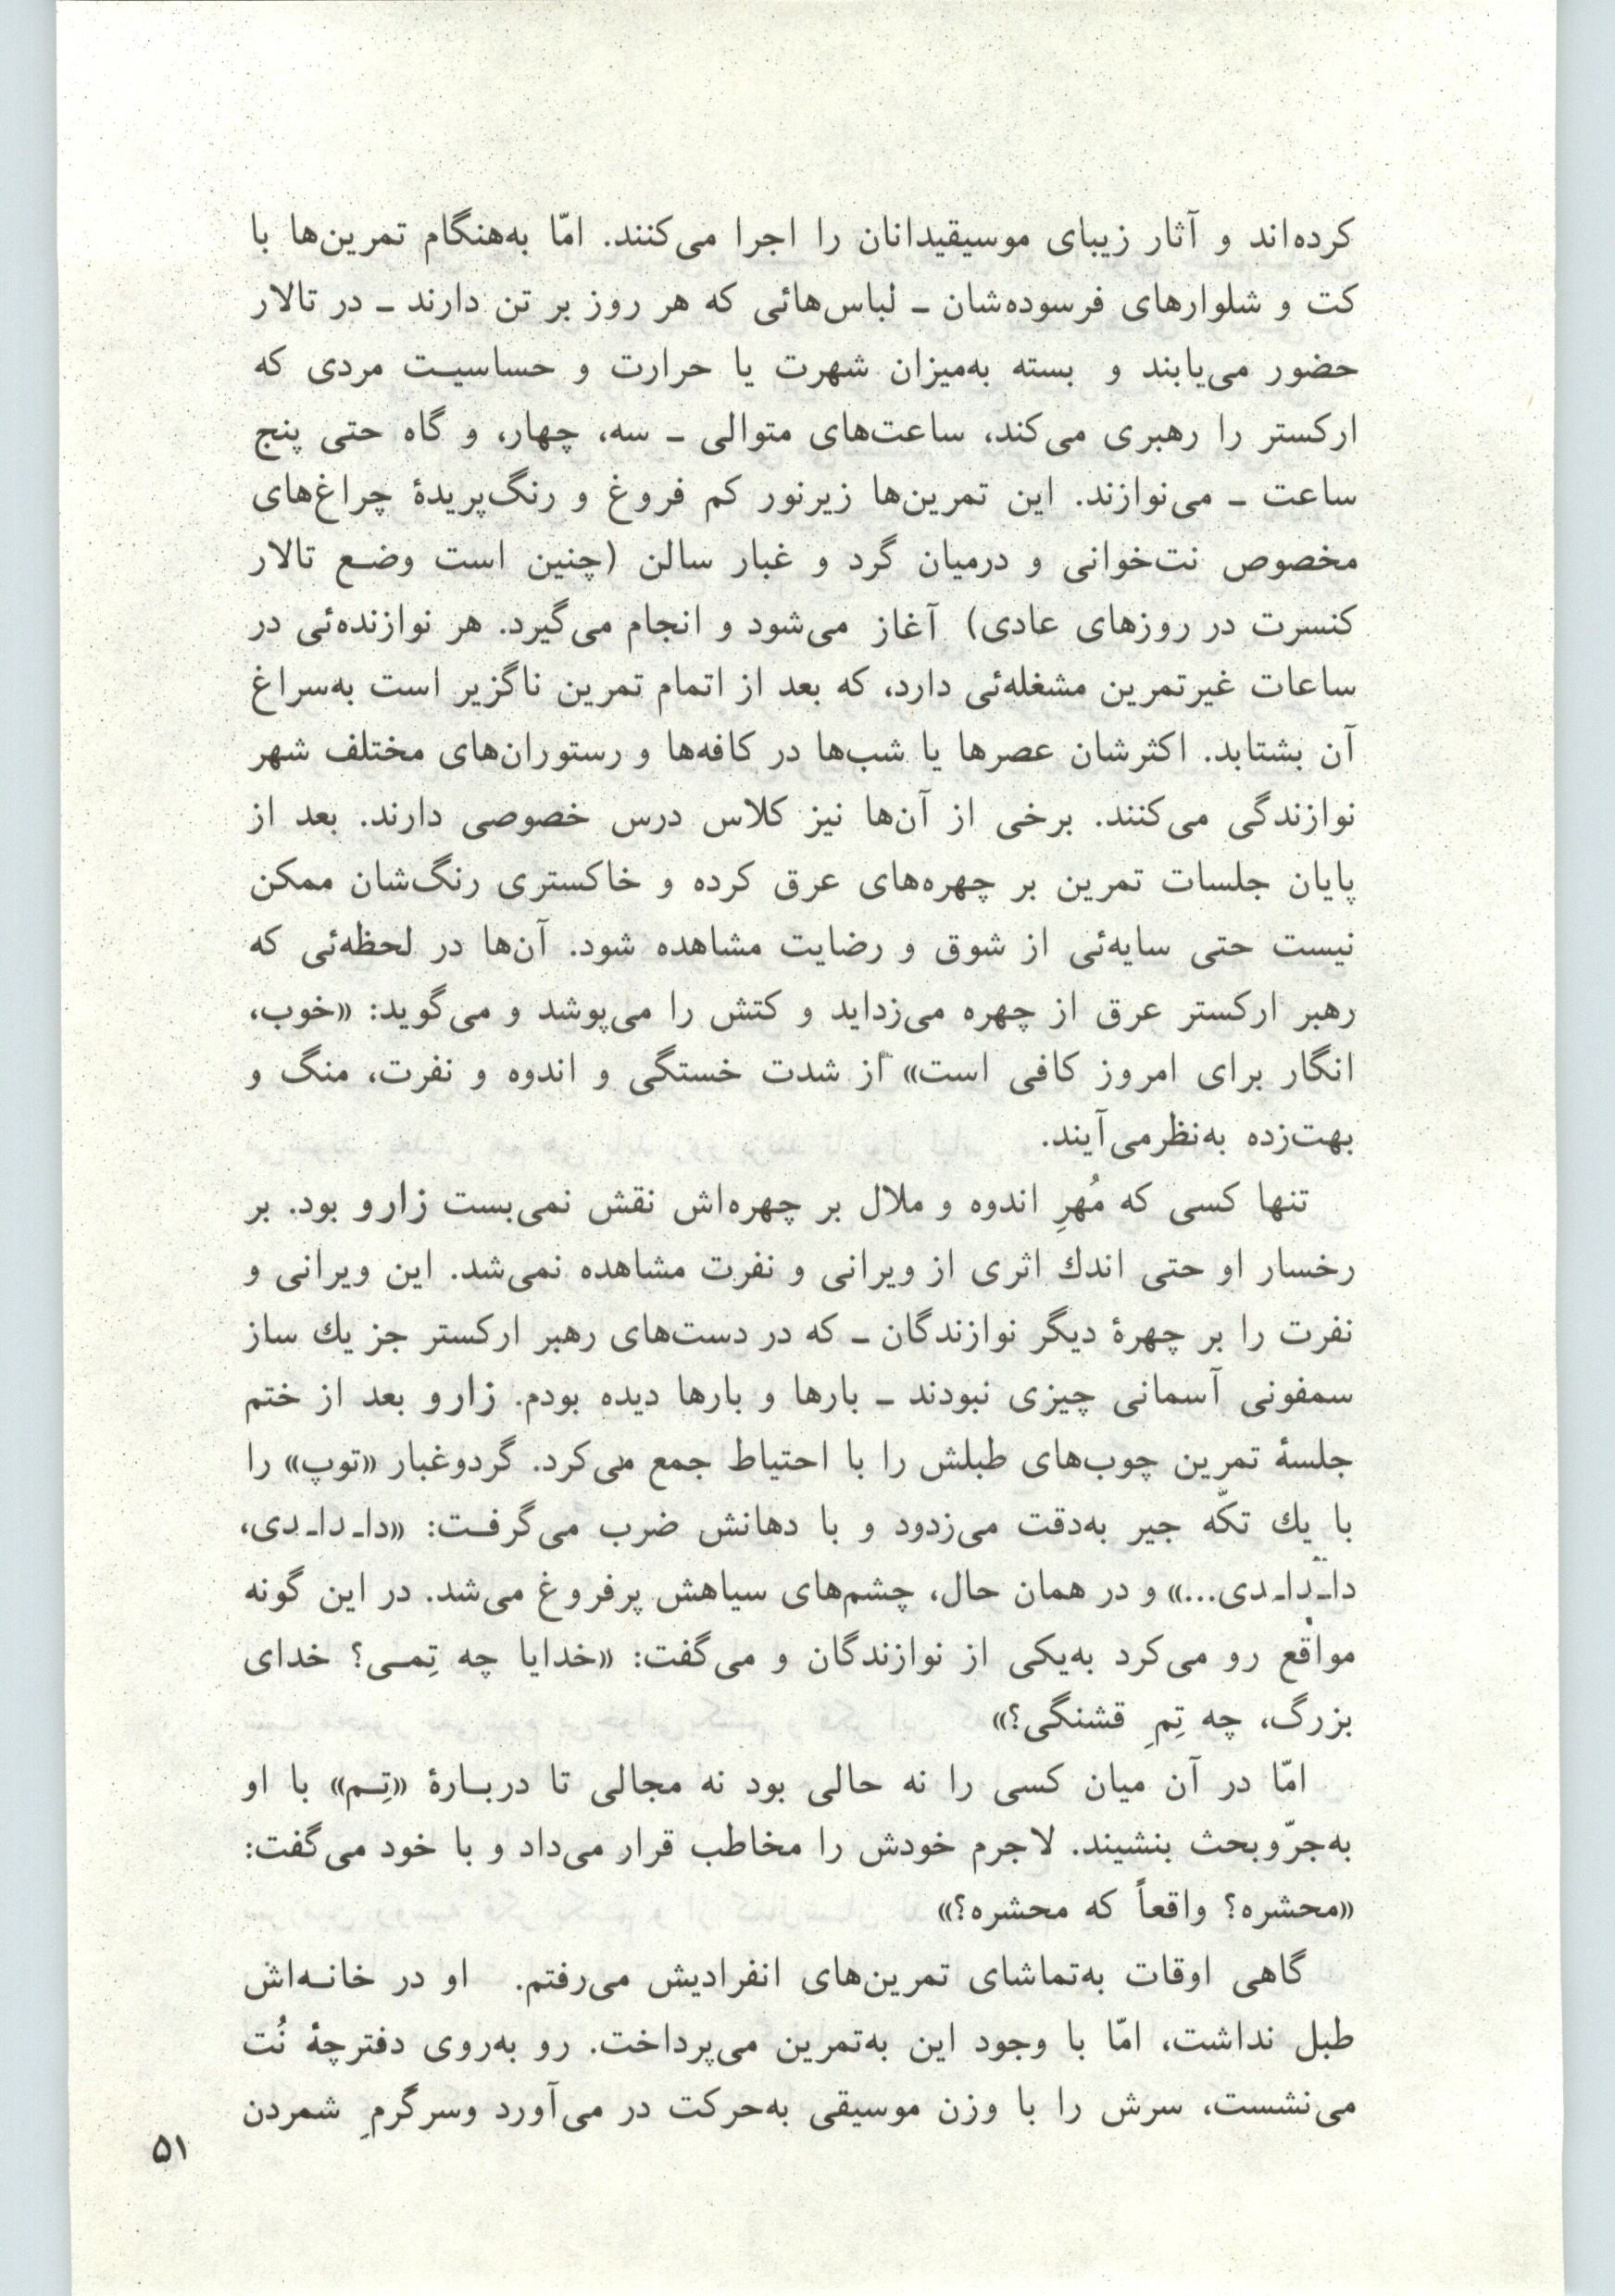 کرده‌اند و آثار زیبای موسیقیدانان را اجرا می‌کنند. امّا به‌هنگام تمرین‌ها با
کت و شلوارهای فرسوده‌شان ـ لباس‌هائی که هر روز بر تن دارند ـ در تالار
حضور می‌یابند و بسته به‌میزان شهرت یا حرارت و حساسیت مردی که
ارکستر را رهبری می‌کند، ساعت‌های متوالی ـ سه، چهار، و گاه حتی پنج
ساعت ـ می‌نوازند. این تمرین‌ها زیرنور کم فروغ و رنگ‌پریدهٔ چراغ‌های
مخصوص نت‌خوانی و درمیان گرد و غبار سالن (چنین است وضع تالار
کنسرت در روزهای عادی) آغاز می‌شود و انجام می‌گیرد. هر نوازنده‌ئی در
ساعات غیرتمرین مشغله‌ئی دارد، که بعد از اتمام تمرین ناگزیر است به‌سراغ
آن بشتابد. اکثرشان عصرها یا شب‌ها در کافه‌ها و رستوران‌های مختلف شهر
نوازندگی می‌کنند. برخی از آن‌ها نیز کلاس درس خصوصی دارند. بعد از
پایان جلسات تمرین بر چهره‌های عرق کرده و خاکستری رنگ‌شان ممکن
نیست حتی سایه‌ئی از شوق و رضایت مشاهده شود. آن‌ها در لحظه‌ئی که
رهبر ارکستر عرق از چهره می‌زداید و کتش را می‌پوشد و می‌گوید: «خوب،
انگار برای امروز کافی است» از شدت خستگی و اندوه و نفرت، منگ و
بهت‌زده به‌نظرمی‌آیند.
تنها کسی که مُهرِ اندوه و ملال بر چهره‌اش نقش نمی‌بست زارو بود. بر
رخسار او حتی اندك اثری از ویرانی و نفرت مشاهده نمی‌شد. این ویرانی و
نفرت را بر چهرهٔ دیگر نوازندگان ـ که در دست‌های رهبر ارکستر جز یك ساز
سمفونی آسمانی چیزی نبودند ـ بارها و بارها دیده بودم. زارو بعد از ختم
جلسهٔ تمرین چوب‌های طبلش را با احتیاط جمع می‌کرد. گردوغبار «توپ» را
با یك تکّه جیر به‌دقت می‌زدود و با دهانش ضرب می‌گرفت: «داـ داـ دی،
داـ داـ دی...» و در همان حال، چشم‌های سیاهش پرفروغ می‌شد. در این گونه
مواقع رو می‌کرد به‌یکی از نوازندگان و می‌گفت: «خدایا چه تِمی؟ خدای
بزرگ، چه تِمِ قشنگی؟»
امّا در آن میان کسی را نه حالی بود نه مجالی تا دربارهٔ «تِم» با او
به‌جرّوبحث بنشیند. لاجرم خودش را مخاطب قرار می‌داد و با خود می‌گفت:
«محشره؟ واقعاً که محشره؟»
گاهی اوقات به‌تماشای تمرین‌های انفرادیش می‌رفتم. او در خانه‌اش
طبل نداشت، امّا با وجود این به‌تمرین می‌پرداخت. رو به‌روی دفترچهٔ نُت
می‌نشست، سرش را با وزن موسیقی به‌حرکت در می‌آورد وسرگرمِ شمردن
۵۱